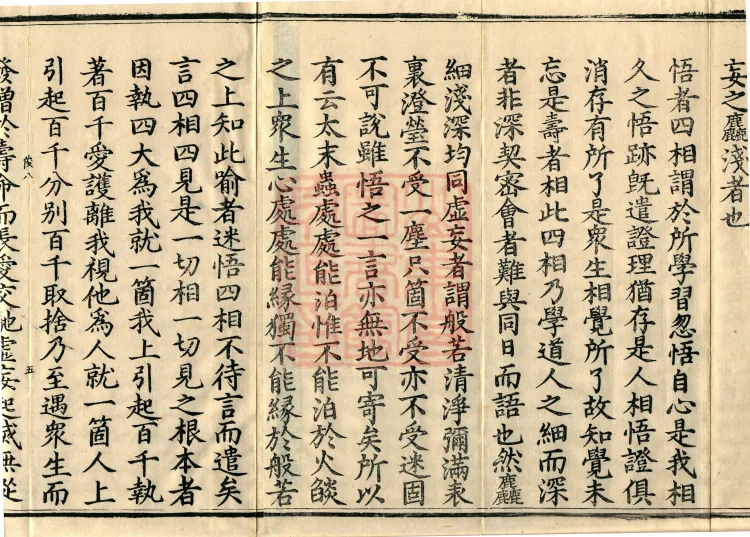 妄之麤淺者也
悟者四相謂於所學習忽悟自心是我相
久之悟跡旣遣證理猶存是人相悟證俱
消存有所了是衆生相覺所了故知覺未
忘是壽者相此四相乃學道人之細而深
者非深契密會者難與同日而語也然麤
細淺深均同虛妄者謂般若清淨彌滿表
裏澄瑩不受一塵只箇不受亦不受迷固
不可說雖悟之一言亦無地可寄矣所以
有云太末蟲處處能泊惟不能泊於火燄
之上衆生心處處能緣獨不能緣於般若
之上知此喻者迷悟四相不待言而遣矣
言四相四見是一切相一切見之根本者
因執四大爲我就一箇我上引起百千執
著百千愛護離我視他爲人就一箇人上
引起百千分別百千取捨乃至遇衆生而
俊八
五
發增於壽命而長愛交馳虛妄起滅無從